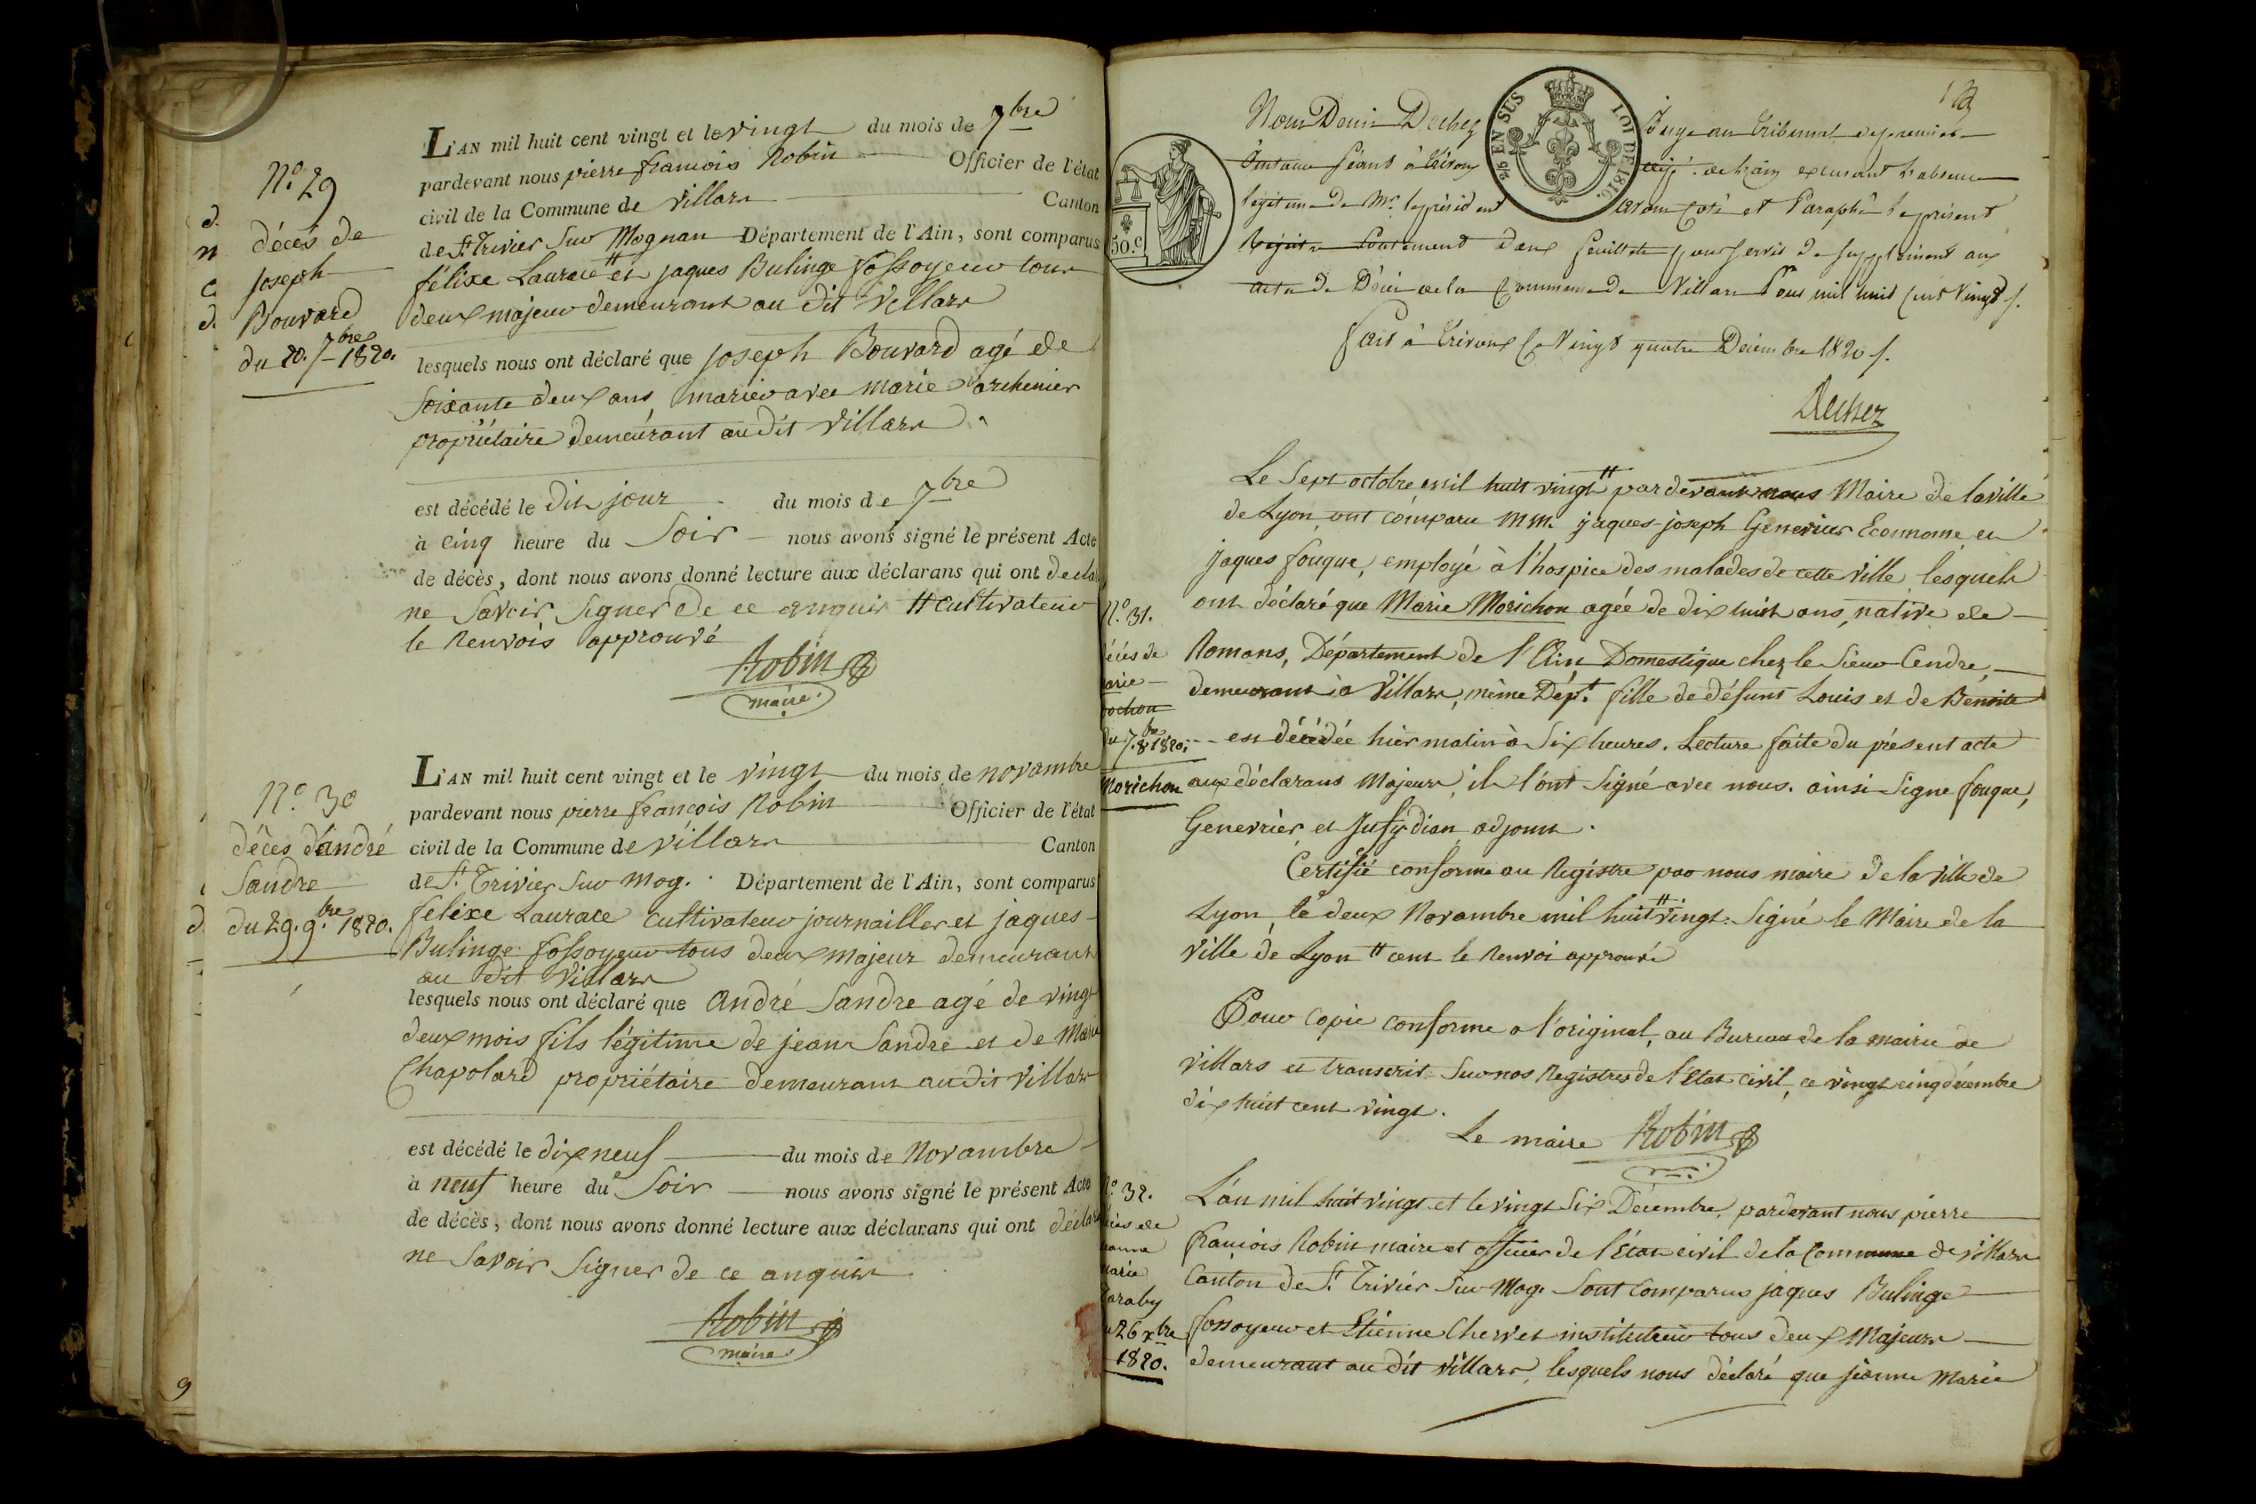 N.º 29
décès de
joseph
Bouvard
du 20. 7bre 1820.
L'AN mil huit cent vingt et le vingt du mois de 7bre
pardevant nous pierre francois Robin Officier de l'état
civil de la Commune de Villars Canton
de St. Trivier Sur Mognan Département de l'Ain, sont comparus
félixe Laurace # et jaques Bulinge fossoyeur tous
deux majeur demeurant au dit Villars
lesquels nous ont déclaré que joseph Bouvard agé de
Soixante deux ans, mariev avec marie
propriétaire demeurant audit Villars
est décédé le dit jour du mois de 7bre
à cinq heure du Soir nous avons signé le présent Acte
de décès, dont nous avons donné lecture aux déclarans qui ont decla
ne Savoir Signer de ce anquis # cultivateur
le Renvois approuvé
Robin
maire
N.º 30
décès d'andré
Sandre
du 29. 9.bre 1820.
L'AN mil huit cent vingt et le vingt du mois de novambre
pardevant nous pierre françois Robin Officier de l'état
civil de la Commune de Villars Canton
de St. Trivier Sur Mog. Département de l'Ain, sont comparus
félixe Laurace cultivateur journailler et jaques
Bulinge fossoyeur tous deux majeur demeurant
au dit Villars
lesquels nous ont déclaré que André Sandre agé de vingt
deux mois fils légitime de jean Sandre et de Marie
Chapolard propriétaire demeurant audit Villars
est décédé le dix neuf du mois de Novambre
à neuf heure du Soir nous avons signé le présent Acte
de décès, dont nous avons donné lecture aux déclarans qui ont déclar
ne Savoir Signer de ce anquis
Robin
maire
9
2/5 EN SUS LOI DE 1816.
50.c
Nous Denis Dechez juge au tribunal de premiere
instance séant à Trévoux de l'ain absence
légitime de Mr. le président avons Coté et Paraphé le présent
deux feuillets pour servir de supplément aux
actes de Décès de la Commune de Villars Pour mil huit cent vingt /.
Fait à Trévoux le Vingt quatre Décembre 1820 /.
Dechez
Le Sept octobre mil huit vingt # par devant nous Maire de la ville
de Lyon, ont comparu MM. jaques-joseph Genevrier Econnome et
jaques fouque, employé à l'hospice des malades de cette ville lesquels
ont déclaré que Marie Morichon agée de dix huit ans, native de
Romans, Département de l'Ain Domestique chez le Sieur Cendre,
demeurant à Villars, même Dépt. fille de défunt Louis et de Benoite
est décédée hier matin à Six heures. Lecture faite du présent acte
aux déclarans Majeurs, ils l'ont Signé avec nous. ainsi Signe fouque,
Genevrier et adjoint.
Certifié conforme au Registre par nous maire de la ville de
Lyon, le deux Novambre mil huit # vingt. Signé le Maire de la
Ville de Lyon # cent le Renvoi approuvé
N.º 31.
écès de
arie
ochon
du 7. 8bre 1820.
Morichon
Pour Copie conforme a l'original, au Bureau de la mairie de
Villars et transcrit Sur nos Registres de l'Etat civil, ce vingt cinq décembre
dix huit cent vingt.
Le maire Robin
N.º 32.
ècès de
eanne
marie
araby
u 26 xbre
1820.
L'an mil huit vingt et le vingt Six Décembre, pardevant nous pierre
francois Robin maire et officier de l'Etat civil de la Commune de Villars
Canton de St. Trivier Sur Mog. Sont Comparus jaques Bulinge
fossoyeur et Etienne Chervet instituteur tous deux Majeurs
demeurant au dit Villars, lesquels nous déclaré que jeanne Marie